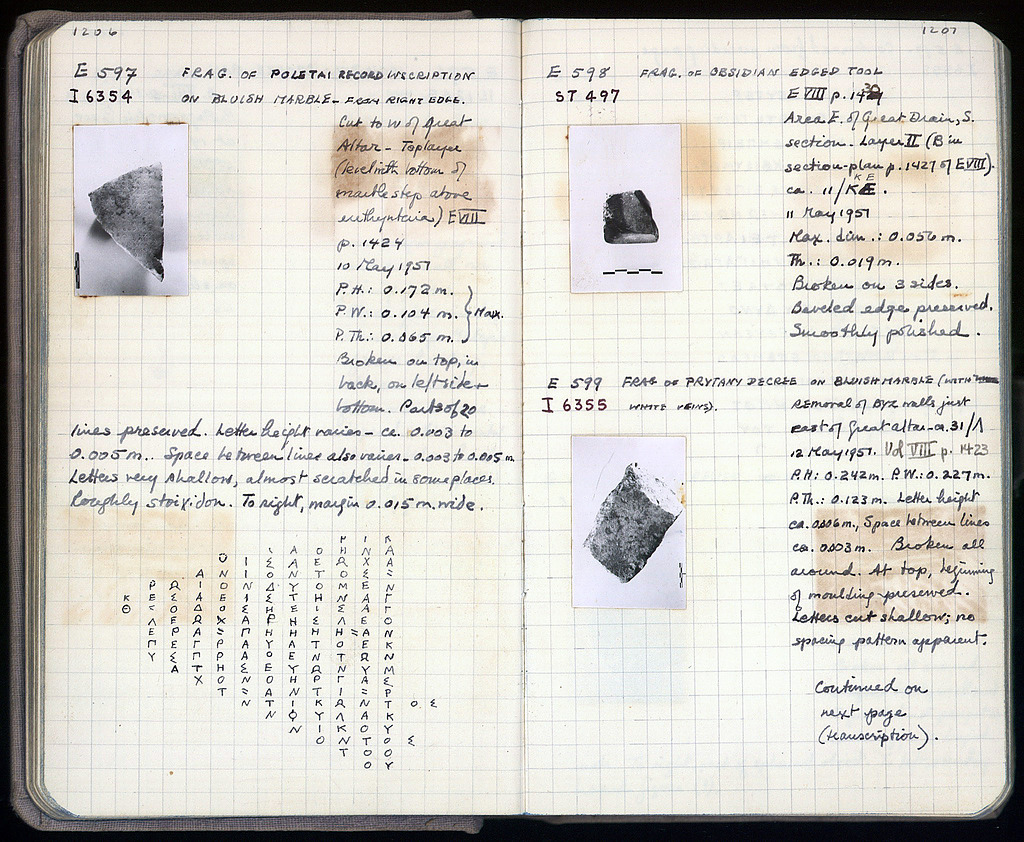 1206
E 597 FRAG. OF POLETAI RECORD INSCRIPTION
I 6354 ON BLUISH MARBLE – FROM RIGHT EDGE.
Cut to W of Great
Altar – Top layer
(level with bottom of
marble step above
euthynteria) E VIII
p. 1424
10 May 1951
P.H.: 0.172 m.
P.W.: 0.104 m. } Max.
P.Th.: 0.065 m.
Broken on top, in
back, on left side +
bottom. Parts of 20
lines preserved. Letter height varies – ca. 0.003 to
0.005 m. Space between lines also varies – 0.003 to 0.005 m.
Letters very shallow, almost scratched in some places.
Roughly stoixidon. To right, margin 0.015 m. wide.
1207
E 598 FRAG. OF OBSIDIAN EDGED TOOL
ST 497 E VIII p. 1430
Area E. of Great Drain, S.
section. Layer II (B in
section-plan p. 1427 of E VIII).
ca. 11/ΚΕ.
11 May 1951
Max. dim.: 0.056 m.
Th.: 0.019 m.
Broken on 3 sides.
Beveled edge preserved.
Smoothly polished.
E 599 FRAG OF PRYTANY DECREE ON BLUISH MARBLE (WITH
I 6355 WHITE VEINS).
Removal of Byz walls just
east of Great altar – ca. 31/Λ
12 May 1951. Vol VIII p. 1423
P.H: 0.242 m. P.W.: 0.227 m.
P.Th.: 0.123 m. Letter height
ca. 0.006 m., Space between lines
ca. 0.003 m. Broken all
around. At top, beginning
of moulding preserved.
Letters cut shallow; no
spacing pattern apparent.
Continued on
next page
(transcription).